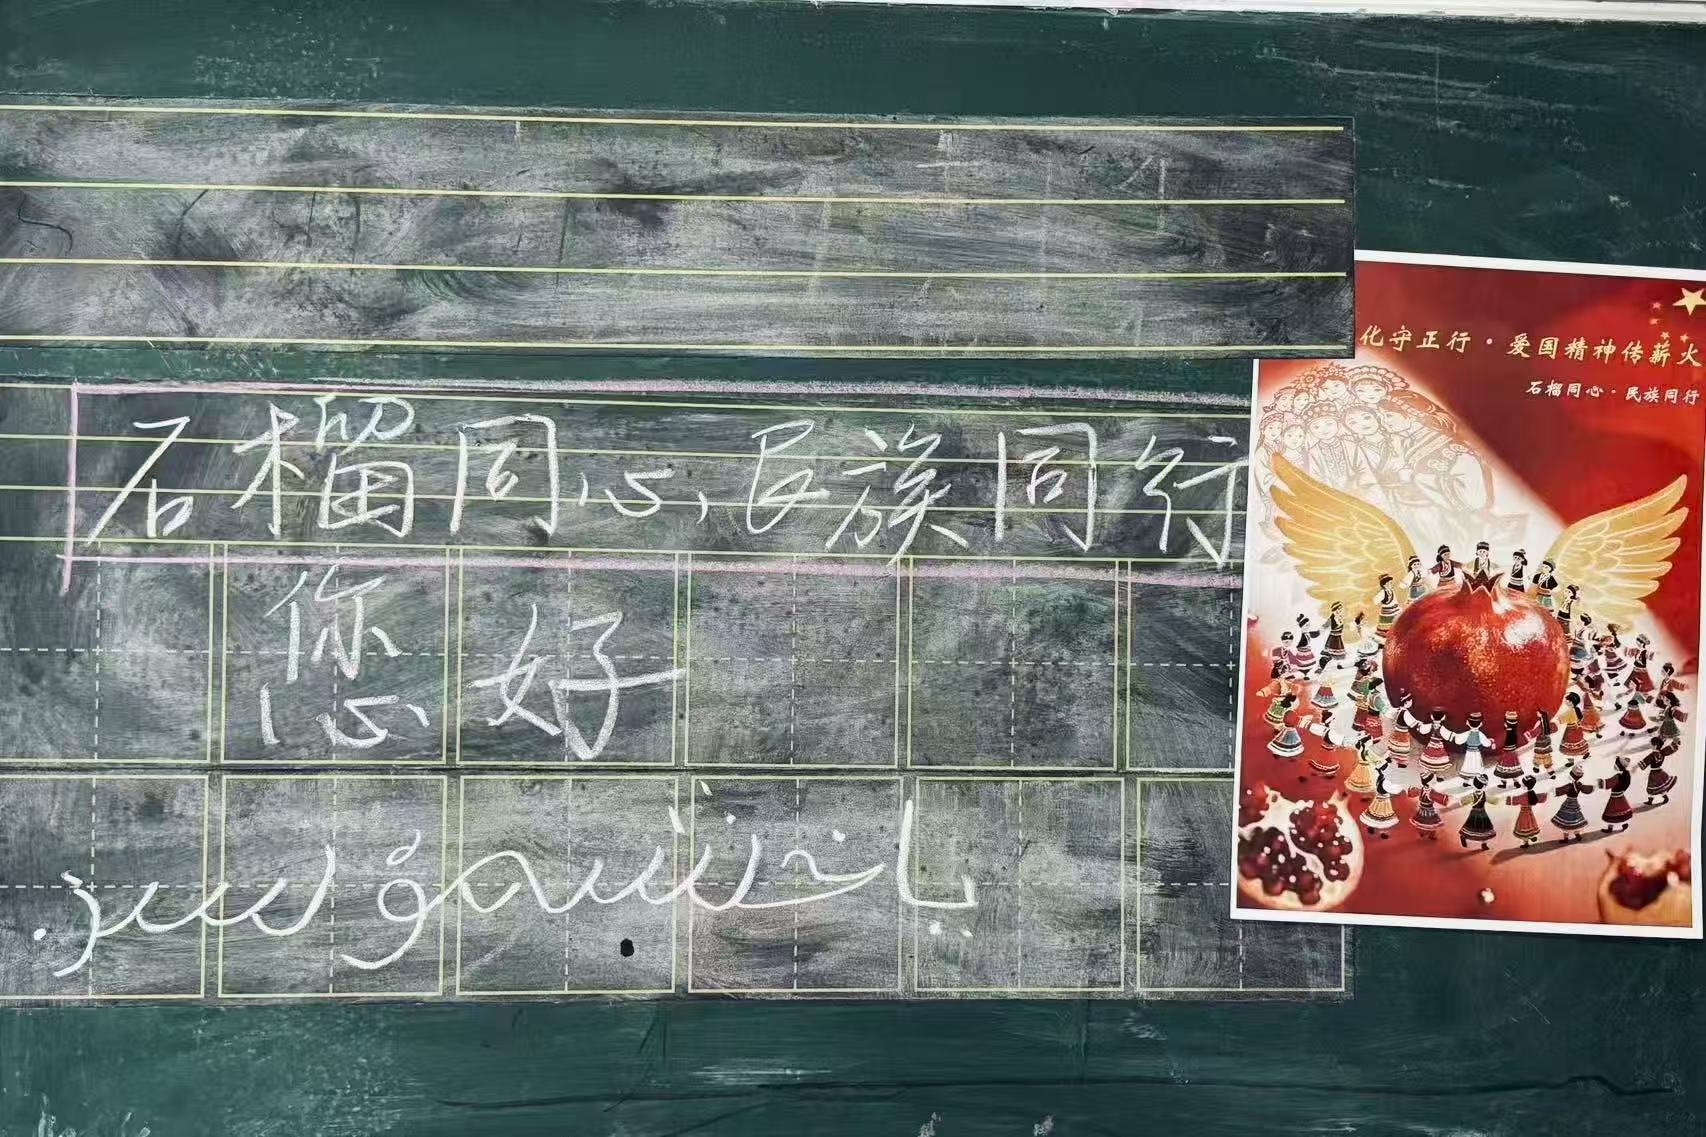 石榴同心,民族同行
您好
ياخشىمۇسىز
化守正行·爱国精神传薪火
石榴同心·民族同行